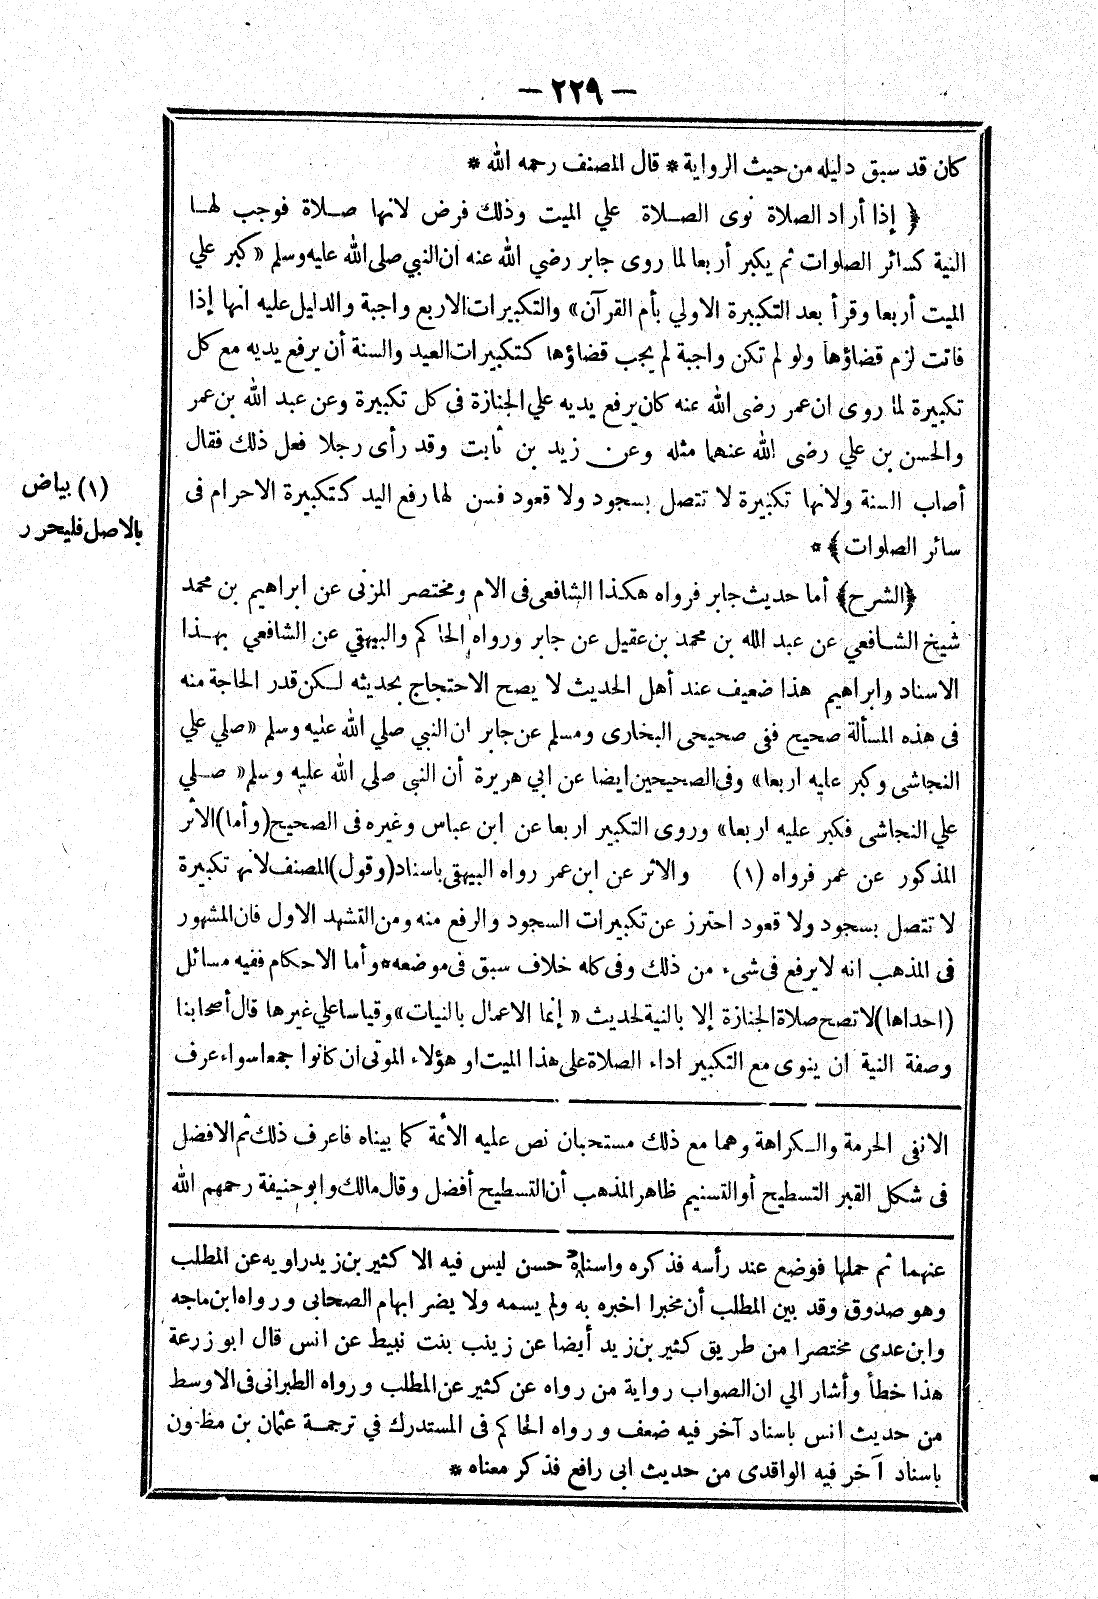 — ٢٢٩ —
كان قد سبق دليله من حيث الرواية * قال المصنف رحمه الله *
﴿ إذا أراد الصلاة نوى الصلاة علي الميت وذلك فرض لانها صلاة فوجب لها
النية كسائر الصلوات ثم يكبر أربعا لما روى جابر رضي الله عنه ان النبي صلى الله عليه وسلم « كبر علي
الميت أربعا وقرأ بعد التكبيرة الاولي بأم القرآن » والتكبيرات الاربع واجبة والدليل عليه انها إذا
فاتت لزم قضاؤها ولو لم تكن واجبة لم يجب قضاؤها كتكبيرات العيد والسنة أن يرفع يديه مع كل
تكبيرة لما روى ان عمر رضى الله عنه كان يرفع يديه علي الجنازة فى كل تكبيرة وعن عبد الله بن عمر
والحسن بن علي رضى الله عنهما مثله وعن زيد بن ثابت وقد رأى رجلا فعل ذلك فقال
أصاب السنة ولانها تكبيرة لا تتصل بسجود ولا قعود فسن لها رفع اليد كتكبيرة الاحرام فى
سائر الصلوات ﴾ *
(١) بياض
بالاصل فليحرر
﴿الشرح﴾ أما حديث جابر فرواه هكذا الشافعى فى الام ومختصر المزنى عن ابراهيم بن محمد
شيخ الشافعي عن عبد الله بن محمد بن عقيل عن جابر ورواه الحاكم والبيهقي عن الشافعي بهذا
الاسناد وابراهيم هذا ضعيف عند أهل الحديث لا يصح الاحتجاج بحديثه لكن قدر الحاجة منه
فى هذه المسألة صحيح ففى صحيحى البخارى ومسلم عن جابر ان النبي صلي الله عليه وسلم « صلي علي
النجاشى وكبر عليه اربعا » وفى الصحيحين ايضا عن ابي هريرة أن النبى صلى الله عليه وسلم « صلي
علي النجاشى فكبر عليه اربعا » وروى التكبير اربعا عن ابن عباس وغيره فى الصحيح (وأما) الأثر
المذكور عن عمر فرواه (١) والاثر عن ابن عمر رواه البيهقى باسناد (وقول) المصنف لانها تكبيرة
لا تتصل بسجود ولا قعود احترز عن تكبيرات السجود والرفع منه ومن التشهد الاول فان المشهور
فى المذهب انه لا يرفع فى شىء من ذلك وفى كله خلاف سبق فى موضعه * وأما الاحكام ففيه مسائل
(احداها) لا تصح صلاة الجنازة إلا بالنية لحديث « إنما الاعمال بالنيات » وقياسا علي غيرها قال أصحابنا
وصفة النية ان ينوى مع التكبير اداء الصلاة على هذا الميت او هؤلاء الموتى ان كانوا جمعا سواء عرف
الانفى الحرمة والكراهة وهما مع ذلك مستحبان نص عليه الأئمة كما بيناه فاعرف ذلك ثم الافضل
فى شكل القبر التسطيح أو التسنيم ظاهر المذهب أن التسطيح أفضل وقال مالك وابو حنيفة رحمهم الله
عنهما ثم حملها فوضع عند رأسه فذكره واسناده حسن ليس فيه الا كثير بن زيد راويه عن المطلب
وهو صدوق وقد بين المطلب أن مخبرا اخبره به ولم يسمه ولا يضر ابهام الصحابى ورواه ابن ماجه
وابن عدى مختصرا من طريق كثير بن زيد أيضا عن زينب بنت نبيط عن انس قال ابو زرعة
هذا خطأ وأشار الي ان الصواب رواية من رواه عن كثير عن المطلب ورواه الطبرانى فى الاوسط
من حديث انس باسناد آخر فيه ضعف ورواه الحاكم فى المستدرك في ترجمة عثمان بن مظعون
باسناد آخر فيه الواقدى من حديث ابى رافع فذكر معناه *